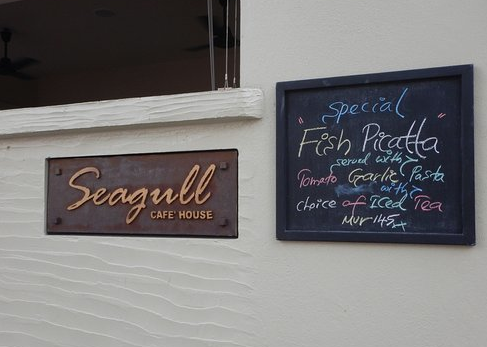 Seagull
CAFE' HOUSE
special
"Fish Picatta"
served with
Tomato Garlic Pasta
with
choice of Iced Tea
MVR 145/+